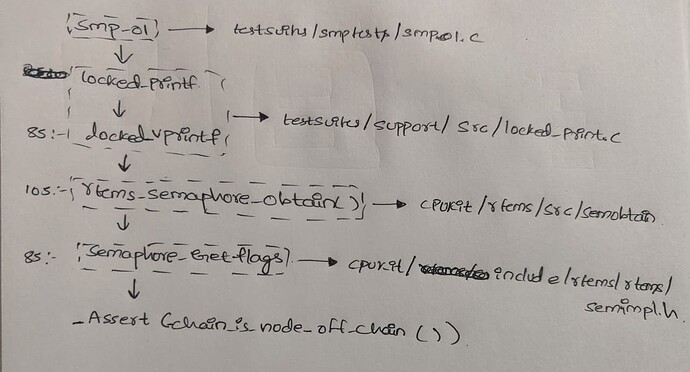 smp-01 → testsuites/smptests/smp01.c
locked_printf
85:- locked_vprintf → testsuites/support/src/locked_print.c
105:- rtems_semaphore_obtain() → cpukit/rtems/src/semobtain
85:- semaphore_Get_flags → cpukit/include/rtems/rtems/
semimpl.h
_Assert (chain_is_node_off_chain ())